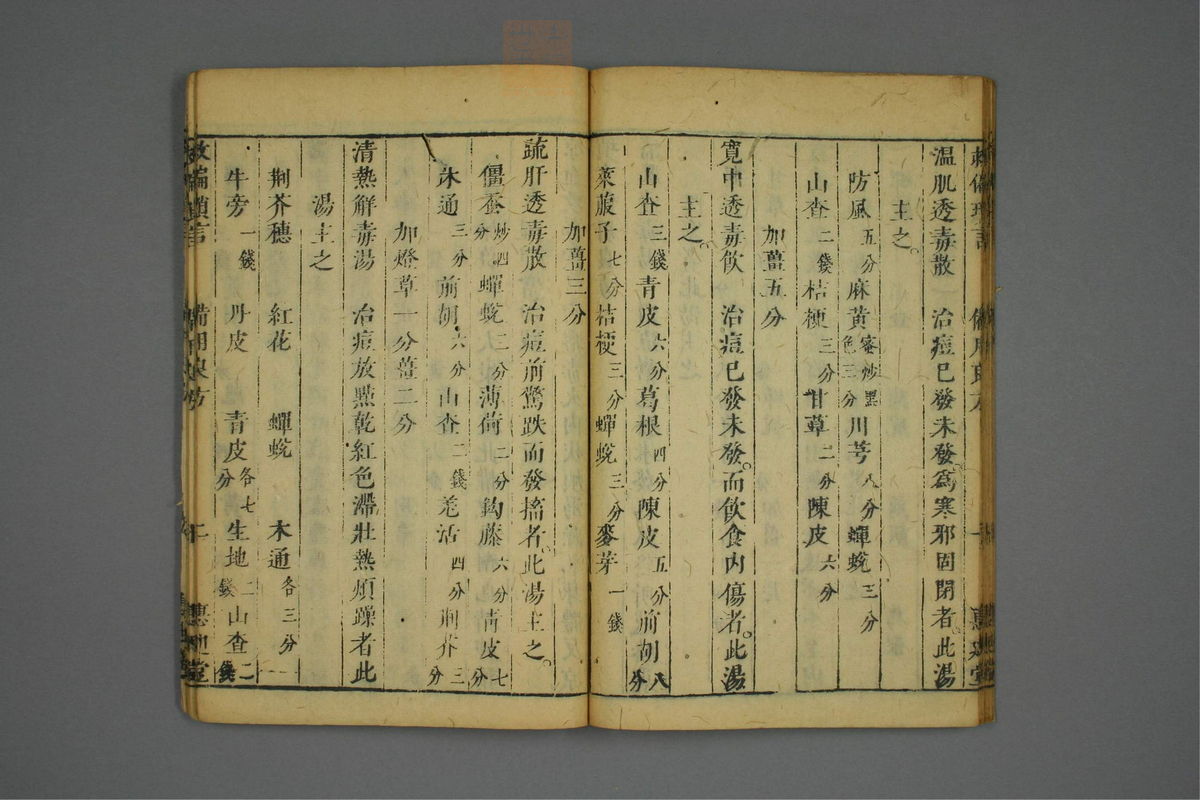 温肌透毒散　治痘已發未發爲寒邪固閉者此湯
主之
防風五分麻黄蜜炒黑色三分川芎八分蟬蛻三分
山查二錢桔梗三分甘草二分陳皮六分
加薑五分
寛中透毒飲　治痘已發未發而飲食内傷者此湯
主之
山查三錢青皮六分葛根四分陳皮五分前胡八分
萊菔子七分桔梗三分蟬蛻三分麥芽一錢
加薑三分
疏肝透毒散　治痘前驚跌而發搐者此湯主之
僵蚕炒四分蟬蛻二分薄荷二分鈎藤六分青皮七分
木通三分前胡六分山查二錢羌活四分荆芥三分
加燈草一分薑二分
清熱解毒湯　治痘放㸃乾紅色滯壯熱煩躁者此
湯主之
荆芥穗　紅花　蟬蛻　木通各三分
牛旁一錢丹皮　青皮各七分生地二錢山查二錢
救偏瑣言　備用良方　惠迪堂